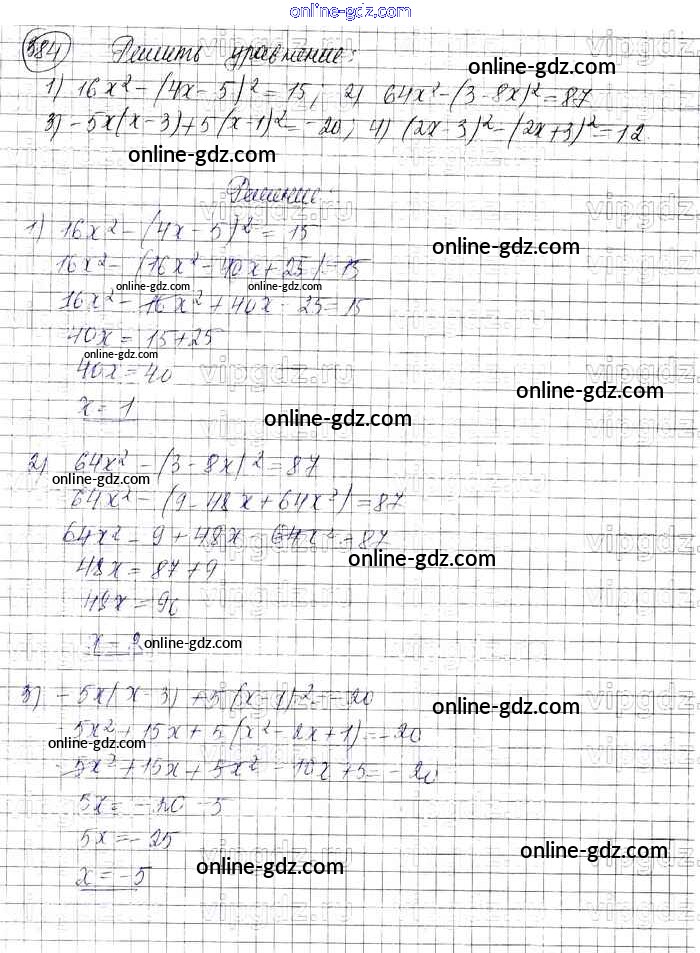 online-gdz.com
384 Решить уравнение:
online-gdz.com
1) 16x² - (4x - 5)² = 15; 2) 64x² - (3 - 8x)² = 87
3) - 5x(x - 3) + 5(x - 1)² = -20; 4) (2x - 3)² - (2x + 3)² = 12
online-gdz.com
Решение:
1) 16x² - (4x - 5)² = 15
online-gdz.com
16x² - (16x² - 40x + 25) = 15
online-gdz.com online-gdz.com
16x² - 16x² + 40x - 25 = 15
40x = 15 + 25
online-gdz.com
40x = 40
vipgdz.ru
online-gdz.com
x = 1
online-gdz.com
2) 64x² - (3 - 8x)² = 87
online-gdz.com
64x² - (9 - 48x + 64x²) = 87
64x² - 9 + 48x - 64x² = 87
online-gdz.com
48x = 87 + 9
48x = 96
x = 2
online-gdz.com
3) - 5x(x - 3) + 5(x - 1)² = -20
online-gdz.com
5x² + 15x + 5(x² - 2x + 1) = -20
online-gdz.com
- 5x² + 15x + 5x² - 10x + 5 = -20
5x = -20 - 5
5x = -25
online-gdz.com
x = -5
online-gdz.com